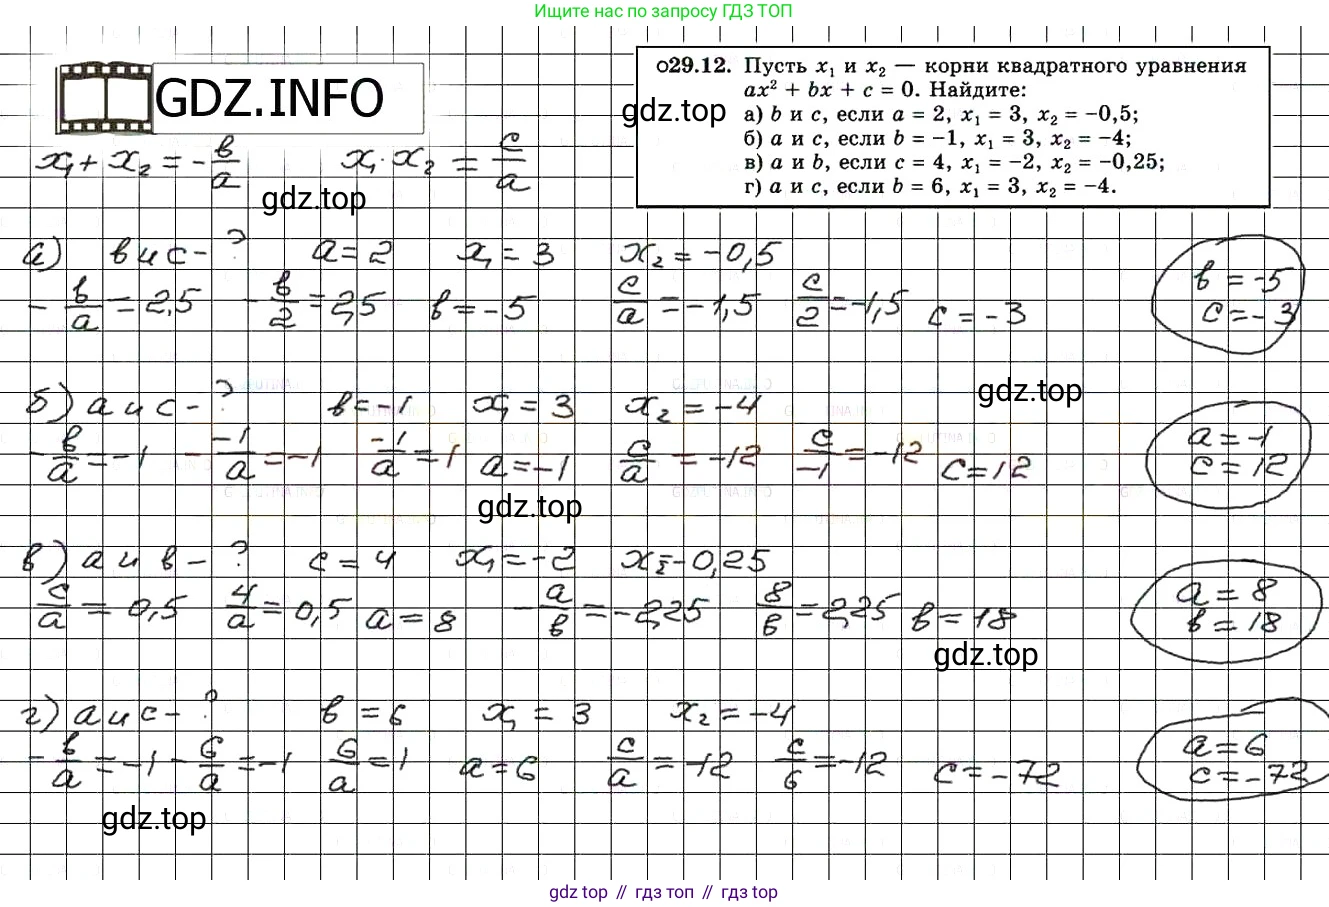 Ищите нас по запросу ГДЗ ТОП
GDZ.INFO
о29.12. Пусть x₁ и x₂ — корни квадратного уравнения
ax² + bx + c = 0. Найдите:
а) b и c, если a = 2, x₁ = 3, x₂ = −0,5;
б) a и c, если b = −1, x₁ = 3, x₂ = −4;
в) a и b, если c = 4, x₁ = −2, x₂ = −0,25;
г) a и c, если b = 6, x₁ = 3, x₂ = −4.
gdz.top
x₁ + x₂ = −b/a x₁·x₂ = c/a
gdz.top
а) b и c − ? a = 2 x₁ = 3 x₂ = −0,5
−b/a = 2,5 −b/2 = 2,5 b = −5 c/a = −1,5 c/2 = −1,5 c = −3
b = −5
c = −3
gdz.top
б) a и c − ? b = −1 x₁ = 3 x₂ = −4
−b/a = −1 − −1/a = −1 −1/a = 1 a = −1 c/a = −12 c/−1 = −12 c = 12
a = −1
c = 12
gdz.top
в) a и b − ? c = 4 x₁ = −2 x₂ = −0,25
c/a = 0,5 4/a = 0,5 a = 8 −a/b = −2,25 8/b = 2,25 b = 18
a = 8
b = 18
gdz.top
г) a и c − ? b = 6 x₁ = 3 x₂ = −4
−b/a = −1 −6/a = −1 6/a = 1 a = 6 c/a = −12 c/6 = −12 c = −72
a = 6
c = −72
gdz.top
gdz top // гдз топ // gdz top